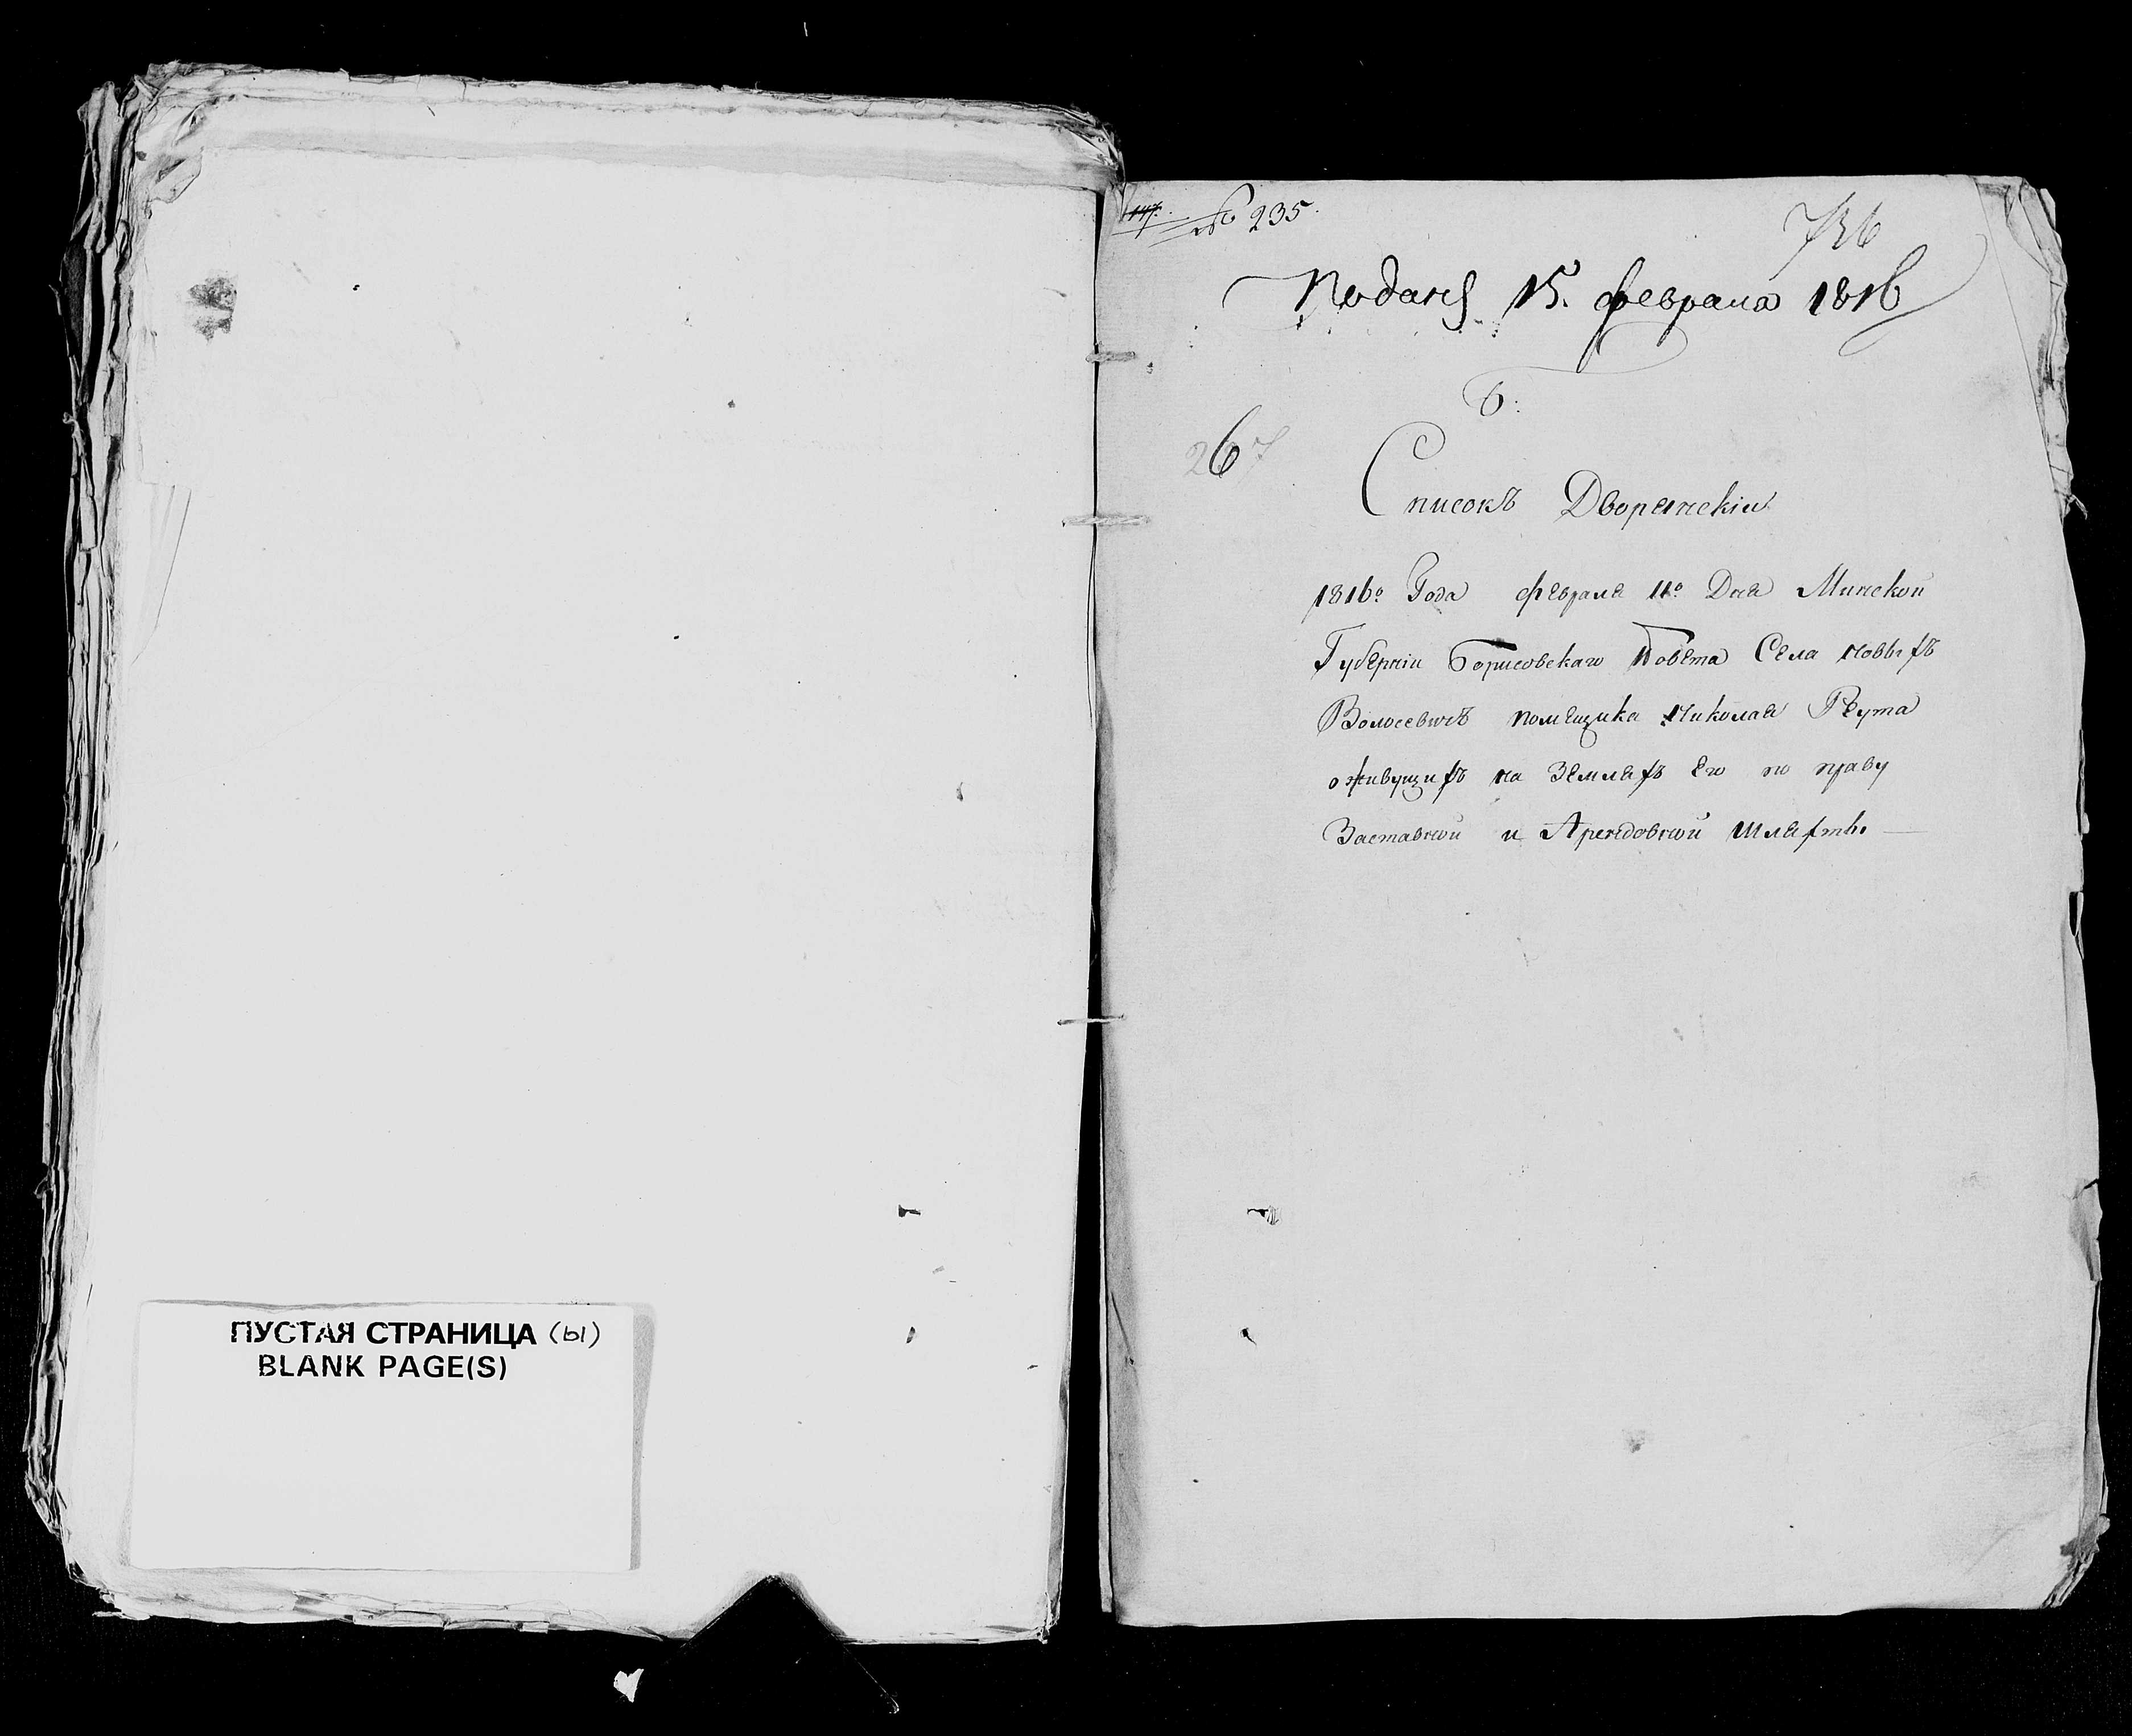 ПУСТАЯ СТРАНИЦА (ы)
BLANK PAGE(S)
147. № 235.
736
Подань 15. февраля 1816
6:
267
Списокъ Дворянскiй
1816º Года февраля 11º Дня Минской
Губернiи Борисовскаго Повѣта Села новыхъ
Волосевичъ помещика Николая Реута
о живущихъ на Земляхъ Его по праву
Заставной и Арендовной шляхты